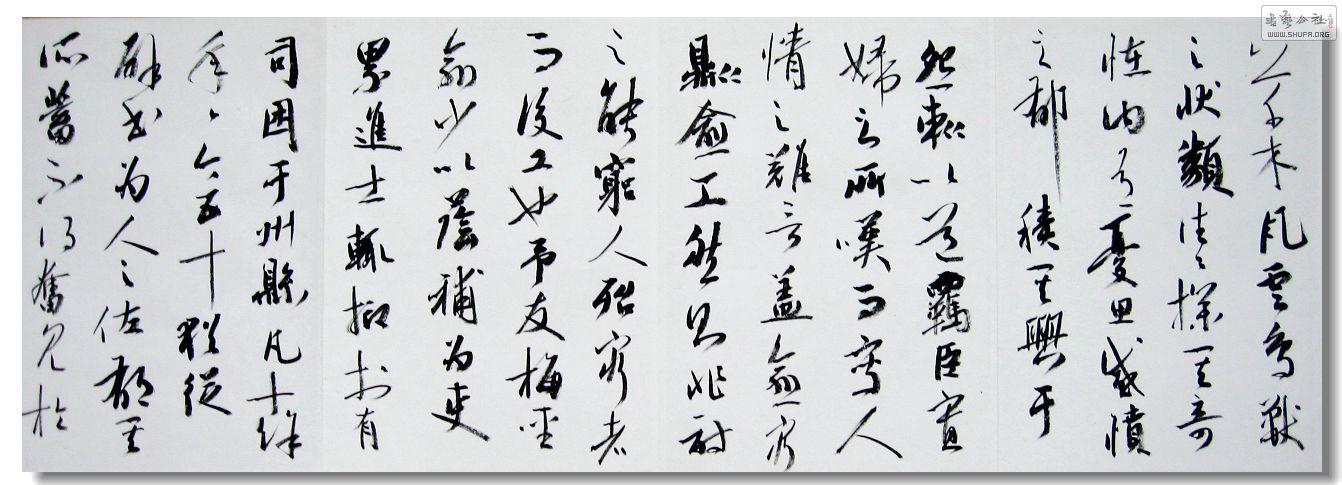 木風雲鳥獸
之狀類往往探其奇
怪內有憂思感憤
之郁積其興于
怨以道羈臣寡
婦之所嘆而寫人
情之難言蓋愈窮
愈工然則非詩
之能窮人殆窮者
而後工也予友梅聖
俞少以蔭補為吏
累進士輒抑於有
司困于州縣凡十餘
年年今五十猶從
辟書為人之佐郁其
所蓄不得奮見於
書藝公社
WWW.SHUFA.ORG